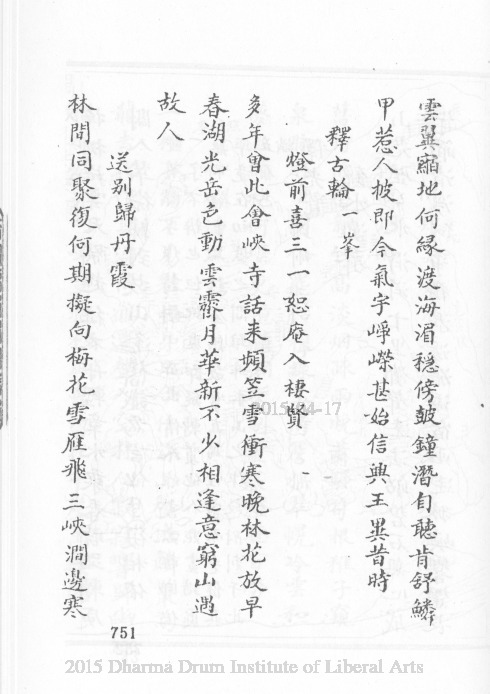 雲翼縮地何緣渡海湄穩傍皷鐘潛自聽肯舒鱗
甲惹人披即今氣宇崢嶸甚始信興王異昔時
釋古輪一峯
燈前喜三一恕庵入棲賢
多年曾此會峽寺話来頻笠雪衝寒晚林花放早
春湖光岳色動雲霽月華新不少相逢意窮山遇
故人
送别歸丹霞
林間同聚復何期擬向梅花雪雁飛三峽澗邊寒
751
2015-04-17
2015 Dharma Drum Institute of Liberal Arts